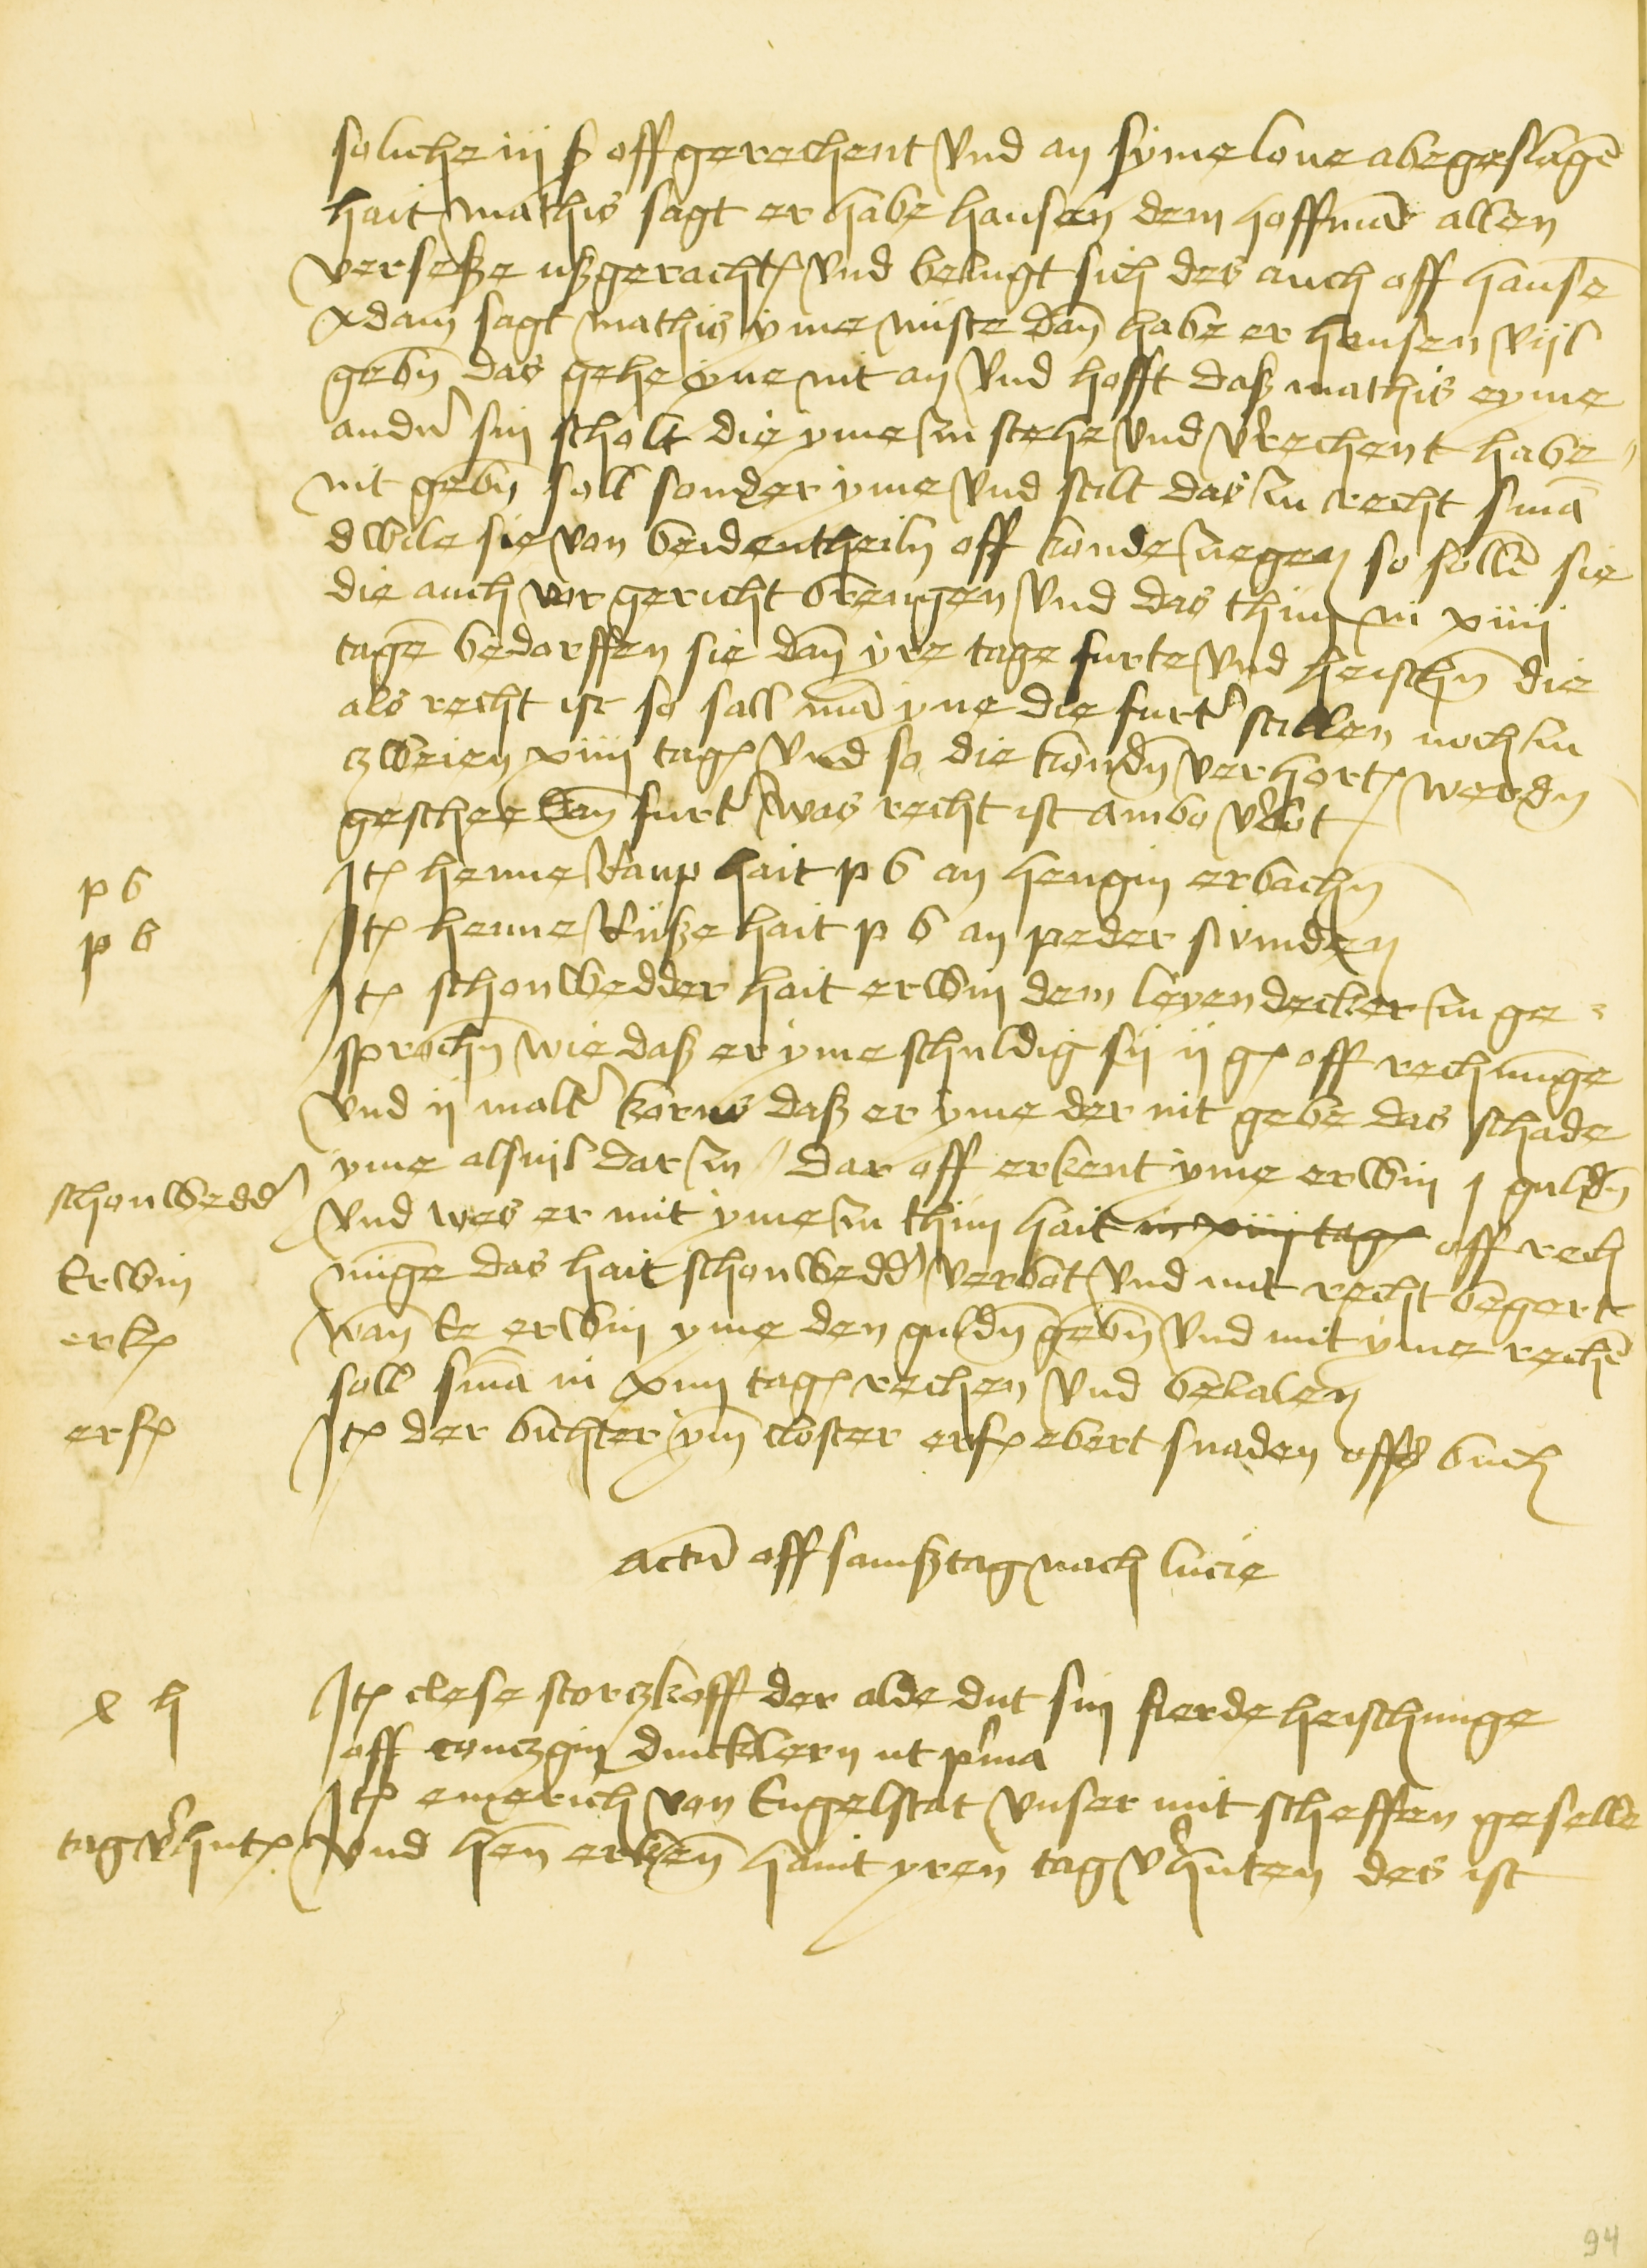 soliche iij ß off gerechent vnd an syme lone abegeslagē
hait mathis sagt er habe hansen dem hoffmā allen
versesße ußgeracht vnd beзugt sich des auch off hansē
Adam sagt mathis yme muste dañ habe er hansen vijl
gebñ das gehe yne nit an vnd hofft daß mathis eyme
andn̄ sin scholt die yme zu stehe vnd v̓rechent habe
nit gebñ soll sonder yme vnd stilt das zu recht smā
dwile sie von beidentheiln off konde zuegen so sollē sie
die auch vor gericht brengen vnd das thun in xiiij
tagē bedorffen sie dañ yre tage furte vnd heischñ die
als recht ist so sall mā yne die furt̓ stillen noch zu
zweien xiiij tag vnd so die kondñ verhort werdñ
geschee dañ furt̓ was recht ist ambo v̓bot
p b Jt henne raup hait p b an hengin erbachñ
p b Jt henne ruße hait p b an peder swinden
Jt schonwedder hait erwin dem leyendecker zu ge
sprochñ wie daß er yme schuldig sij ij g off rechnunge
vnd ij malt̓ korns daß er yme der nit gebe das schade
yme alsuil dar zu // dar off erkent yme erwin j guldñ
schonwedd̓ vnd wes er mit yme zu thun hait in xiiij tag off rech
Erwin nūge das hait schonwedd̓ verbot vnd mit recht begert
erk wañ Ee erwin yme den guldñ gebñ vnd mit yme rechē
soll smā in xiiij tag rechen vnd beзalen
erf Jt der buchter ym closter erf ebert snaden offs buch
Actū off samßtag nach lucie
x h Jt clese storczkoff der alde dut sin fierde heischunge
off conczgin duncklern ut p̓ma
Jt emerich von Engelstat vnser mit scheffen geselle
tag v̓hut vnd heñ erkeñ haint yren tag v̓huten des ist
94